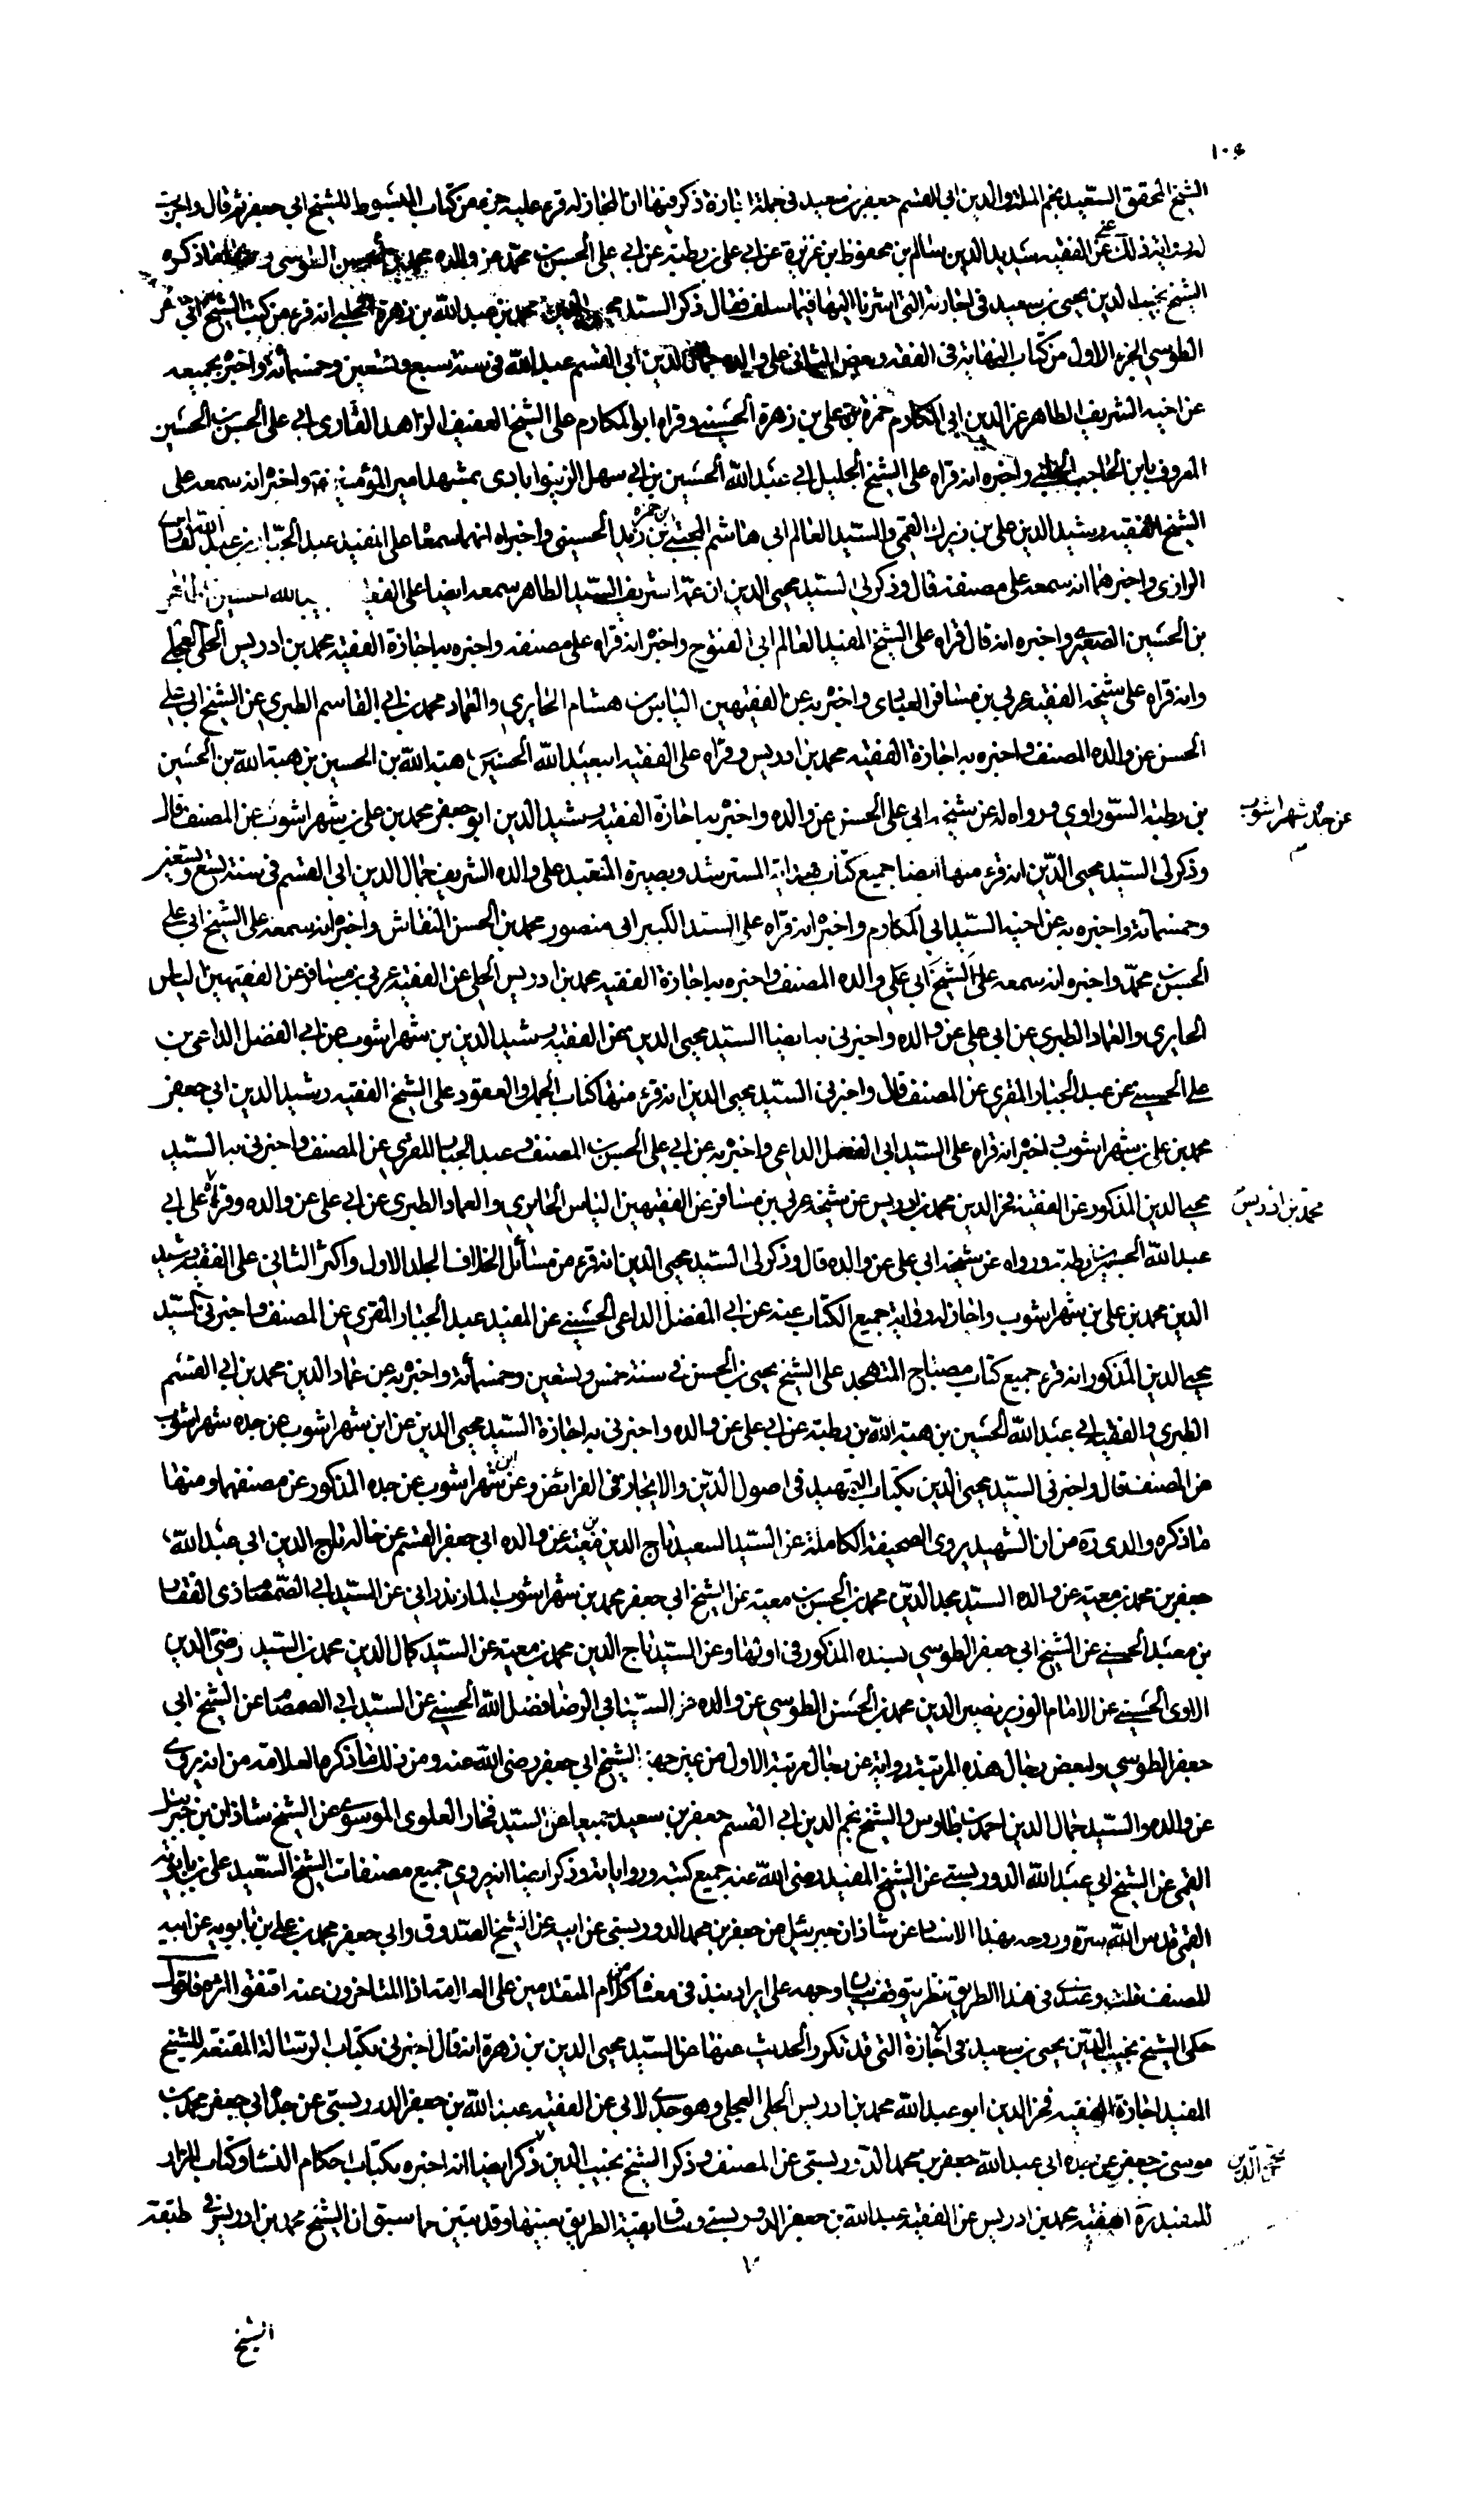 ١٠٤
الشيخ المحقق السعيد نجم الملة والدين ابي القسم جعفر بن سعيد في جملة اجازة ذكر فيها ان المجاز له قرء عليه جزء من كتاب المبسوط للشيخ ابي جعفر ثم قال واجزت
له رواية ذلك عني عن الفقيه سديد الدين سالم بن محفوظ بن عزيزة عن ابي علي بن رطبة عن ابي علي الحسن بن محمد عن والده محمد بن الحسن الطوسي ما ذكره
الشيخ نجيب الدين يحيى بن سعيد في اجازته التي اشرنا اليها فيما سلف فقال ذكر السيد محيي الدين محمد بن عبد الله بن زهرة الحلبي انه قرء من كتب الشيخ ابي جعفر
الطوسي الجزء الاول من كتاب النهاية في الفقه وبعض الثاني على والده جمال الدين ابي القسم عبد الله في سنة سبع وتسعين وخمسمائة واخبره بجميعه
عن اخيه الشريف الطاهر عز الدين ابي المكارم حمزة بن علي بن زهرة الحسيني وقراه ابو المكارم على الشيخ العفيف الزاهد القاري ابي علي الحسن بن الحسين
المعروف بابن الحاجب الحلبي واخبره انه قراه على الشيخ الجليل ابي عبد الله الحسين بن ابي سهل الزينوابادي بمشهد امير المؤمنين واخبره انه سمعه على
الشيخ الفقيه رشيد الدين علي بن زيرك القمي والسيد العالم ابي هاشم المجتبى بن حمزة بن زيد الحسيني واخبراه انهما سمعا على المفيد عبد الجبار بن عبد الله القاري
الرازي واخبرهما انه سمعه على مصنفه قال وذكر لي السيد محيي الدين ان عمه الشريف السيد الطاهر سمعه ايضا على الفقيه
بن الحسين الصغير واخبره انه قال قراه على الشيخ المفيد العالم ابي الفتوح واخبره انه قراه على مصنفه واخبره به اجازة الفقيه محمد بن ادريس الحلي العجلي
وانه قراه على شيخه الفقيه عربي بن مسافر العبادي واخبره به عن الفقيهين الياس بن هشام الحايري والعماد محمد بن ابي القاسم الطبري عن الشيخ ابي علي
الحسن عن والده المصنف واخبره به اجازة الفقيه محمد بن ادريس وقراه على الفقيه ابي عبد الله الحسين بن هبة الله بن الحسين بن هبة الله بن الحسين
بن رطبة السوراوي ورواه له عن شيخه ابي علي الحسن عن والده واخبره به اجازة الفقيه رشيد الدين ابو جعفر محمد بن علي بن شهراشوب عن المصنف قال
عن جده شهراشوب
وذكر لي السيد محيي الدين انه قرء منها ايضا جميع كتاب هداية المسترشد وبصيرة المتعبد على والده الشريف جمال الدين ابي القسم في سنة تسع وتسعين
وخمسمائة واخبره به عن اخيه السيد ابي المكارم واخبره انه قراه على السيد الكبير ابي منصور محمد بن الحسن النقاش واخبره انه سمعه على الشيخ ابي علي
الحسن بن محمد واخبره انه سمعه على الشيخ ابي علي والده المصنف واخبره به اجازة الفقيه محمد بن ادريس الحلي عن الفقيه عربي بن مسافر عن الفقيهين الياس
الحايري والعماد الطبري عن ابي علي عن والده واخبرني به ايضا السيد محيي الدين عن الفقيه رشيد الدين بن شهراشوب عن ابي الفضل الداعي بن
علي الحسيني عن عبد الجبار المقري عن المصنف قال واخبرني السيد محيي الدين انه قرء منها كتاب الجمل والعقود على الشيخ الفقيه رشيد الدين ابي جعفر
محمد بن علي بن شهراشوب واخبره انه قراه على السيد ابي الفضل الداعي واخبره به عن ابي علي الحسن بن المصنف وعبد الجبار المقري عن المصنف واخبرني به السيد
محيي الدين المذكور عن الفقيه فخر الدين محمد بن ادريس عن شيخه عربي بن مسافر عن الفقيهين الياس الحايري والعماد الطبري عن ابي علي عن والده وقراه على ابي
محمد بن ادريس
عبد الله الحسين بن رطبة ورواه عن شيخه ابي علي عن والده قال وذكر لي السيد محيي الدين انه قرء من مسائل الخلاف المجلد الاول واكثر الثاني على الفقيه رشيد
الدين محمد بن علي بن شهراشوب واجاز له رواية جميع الكتاب عنه عن ابي الفضل الداعي الحسيني عن المفيد عبد الجبار المقري عن المصنف واخبرني السيد
محيي الدين المذكور انه قرء جميع كتاب مصباح المتهجد على الشيخ يحيى بن الحسن في سنة خمس وتسعين وخمسمائة واخبره به عن عماد الدين محمد بن ابي القسم
الطبري والفقيه ابي عبد الله الحسين بن هبة الله بن رطبة عن ابي علي عن والده واخبرني به اجازة السيد محيي الدين عن ابن شهراشوب عن جده شهراشوب
عن المصنف قال واخبرني السيد محيي الدين بكتاب التمهيد في اصول الدين والايجاز في الفرائض وعن ابن شهراشوب عن جده المذكور عن مصنفهما ومنها
ما ذكره والدي ره من ان الشهيد يروي الصحيفة الكاملة عن السيد السعيد تاج الدين بن معية عن والده ابي جعفر القسم عن خاله تاج الدين ابي عبد الله
جعفر بن محمد بن معية عن والده السيد مجد الدين محمد بن الحسن بن معية عن الشيخ ابي جعفر محمد بن شهراشوب المازندراني عن السيد ابي الصمصام ذي الفقار
بن معبد الحسني عن الشيخ ابي جعفر الطوسي بسنده المذكور في اولها وعن السيد تاج الدين محمد بن معية عن السيد كمال الدين محمد بن السيد رضي الدين
الاوي الحسيني عن الامام الوزير نصير الدين محمد بن الحسن الطوسي عن والده عن السيد ابي الرضا فضل الله الحسني عن السيد ابي الصمصام عن الشيخ ابي
جعفر الطوسي ولبعض رجال هذه المرتبة رواية عن رجال مرتبة الاول من غير جهة الشيخ ابي جعفر رضي الله عنه ومن ذلك ما ذكره العلامة من انه يروي
عن والده والسيد جمال الدين احمد بن طاوس والشيخ نجم الدين ابي القسم جعفر بن سعيد جميعا عن السيد فخار العلوي الموسوي عن الشيخ شاذان بن جبرئيل
القمي عن الشيخ ابي عبد الله الدوريستي عن الشيخ المفيد رضي الله عنه جميع كتبه ورواياته وذكر ايضا انه يروي جميع مصنفات الشيخ السعيد علي بن بابويه
القمي قدس الله سره وروحه بهذا الاسناد عن شاذان جبرئيل عن جعفر بن محمد الدوريستي عن ابيه عن الشيخ الصدوق وابي جعفر محمد بن علي بن بابويه عن ابيه
المصنف قلت وعندي في هذا الطريق نظر يتوقف بيان وجهه على ايراد نبذ في معناه من كلام المتقدمين على العلامة اذ المتاخرون عنه اقتفوا اثره فاقول
حكى الشيخ نجيب الدين يحيى بن سعيد في اجازته التي قد تكرر الحديث عنها عن السيد محيي الدين بن زهرة انه قال اخبرني بكتاب الرسالة المقنعة للشيخ
المفيد اجازة الفقيه فخر الدين ابو عبد الله محمد بن ادريس الحلي العجلي وهو جدي لابي عن الفقيه عبد الله بن جعفر الدوريستي عن جده ابي جعفر محمد بن
موسى بن جعفر عن جده ابي عبد الله جعفر بن محمد الدوريستي عن المصنف وذكر الشيخ نجيب الدين ذكر ايضا انه اخبره بكتاب احكام النساء وكتاب المزار
للمفيد ره الفقيه محمد بن ادريس عن الفقيه عبد الله بن جعفر الدوريستي وساق بقية الطريق بعينها وقد تبين مما سبق ان الشيخ محمد بن ادريس في طبقة
الشيخ